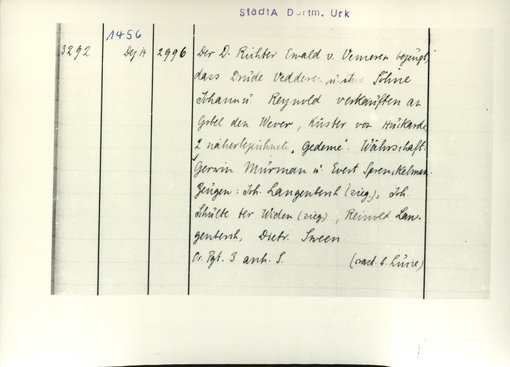 StadtA Dortm. Urk
1456
3292 Dez 14 2996 Der D. Richter Ewald v. Vemeren bezeugt,
dass Drude Vedderen u. ihre Söhne
Johann u Reynold verkauften an
Gobel den Wever, Küster von Huckarde
2 näherbezeichnete „Gedeme". Währschaft:
Gerwin Mürman u. Evert Sprenckelman.
Zeugen: Joh. Langenbeck (sieg), Joh.
Schulte ter Widen (sieg), Reinold Lan-
genbeck, Dietr. Sween.
Or. Pgt. 3 anh. S. (nach b. Lücke)